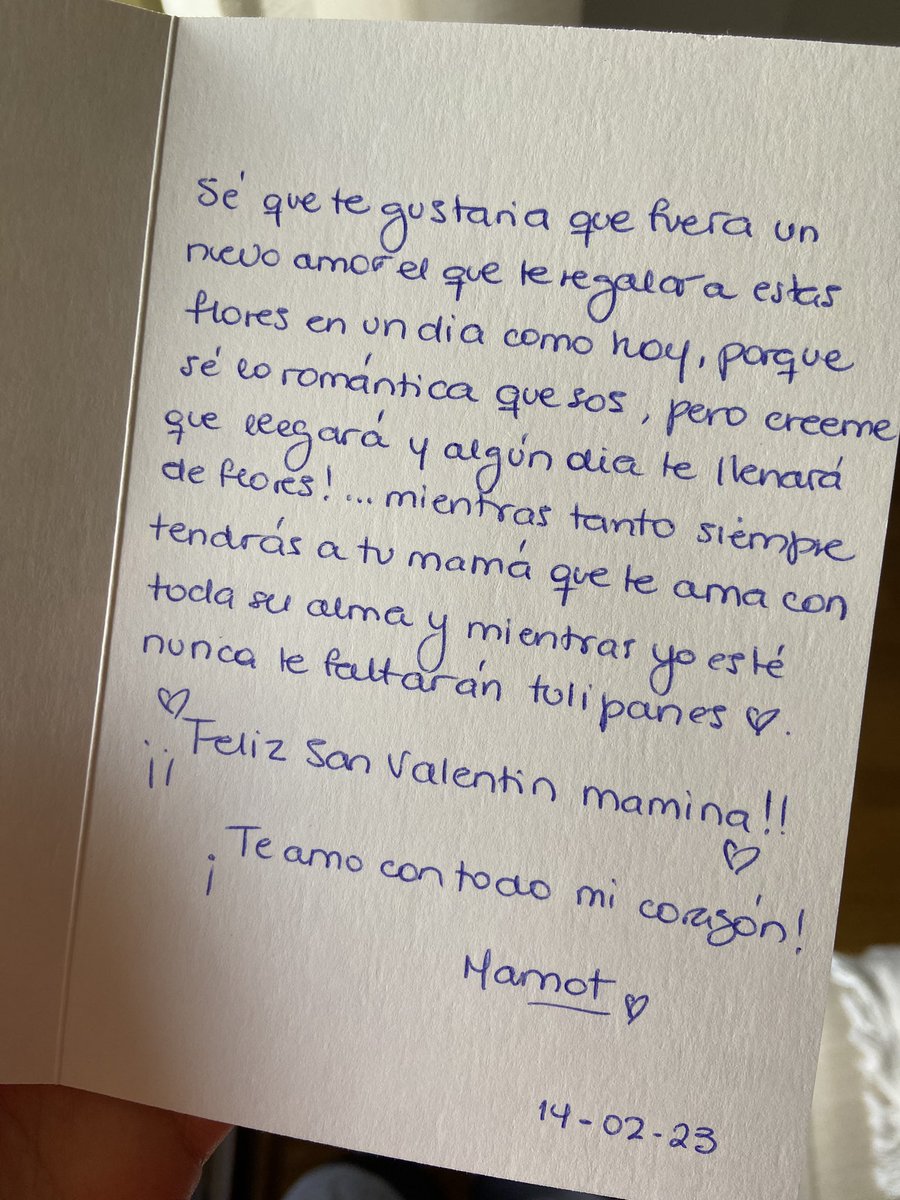 Sé que te gustaria que fuera un
nuevo amor el que te regalara estas
flores en un dia como hoy, porque
sé lo romántica que sos, pero creeme
que llegará y algún dia te llenará
de flores!... mientras tanto siempre
tendrás a tu mamá que te ama con
toda su alma y mientras yo esté
nunca te faltarán tulipanes ♡.
♡
¡¡Feliz San Valentin mamina!!
♡
¡Te amo con todo mi corazón!
Mamot ♡
14-02-23